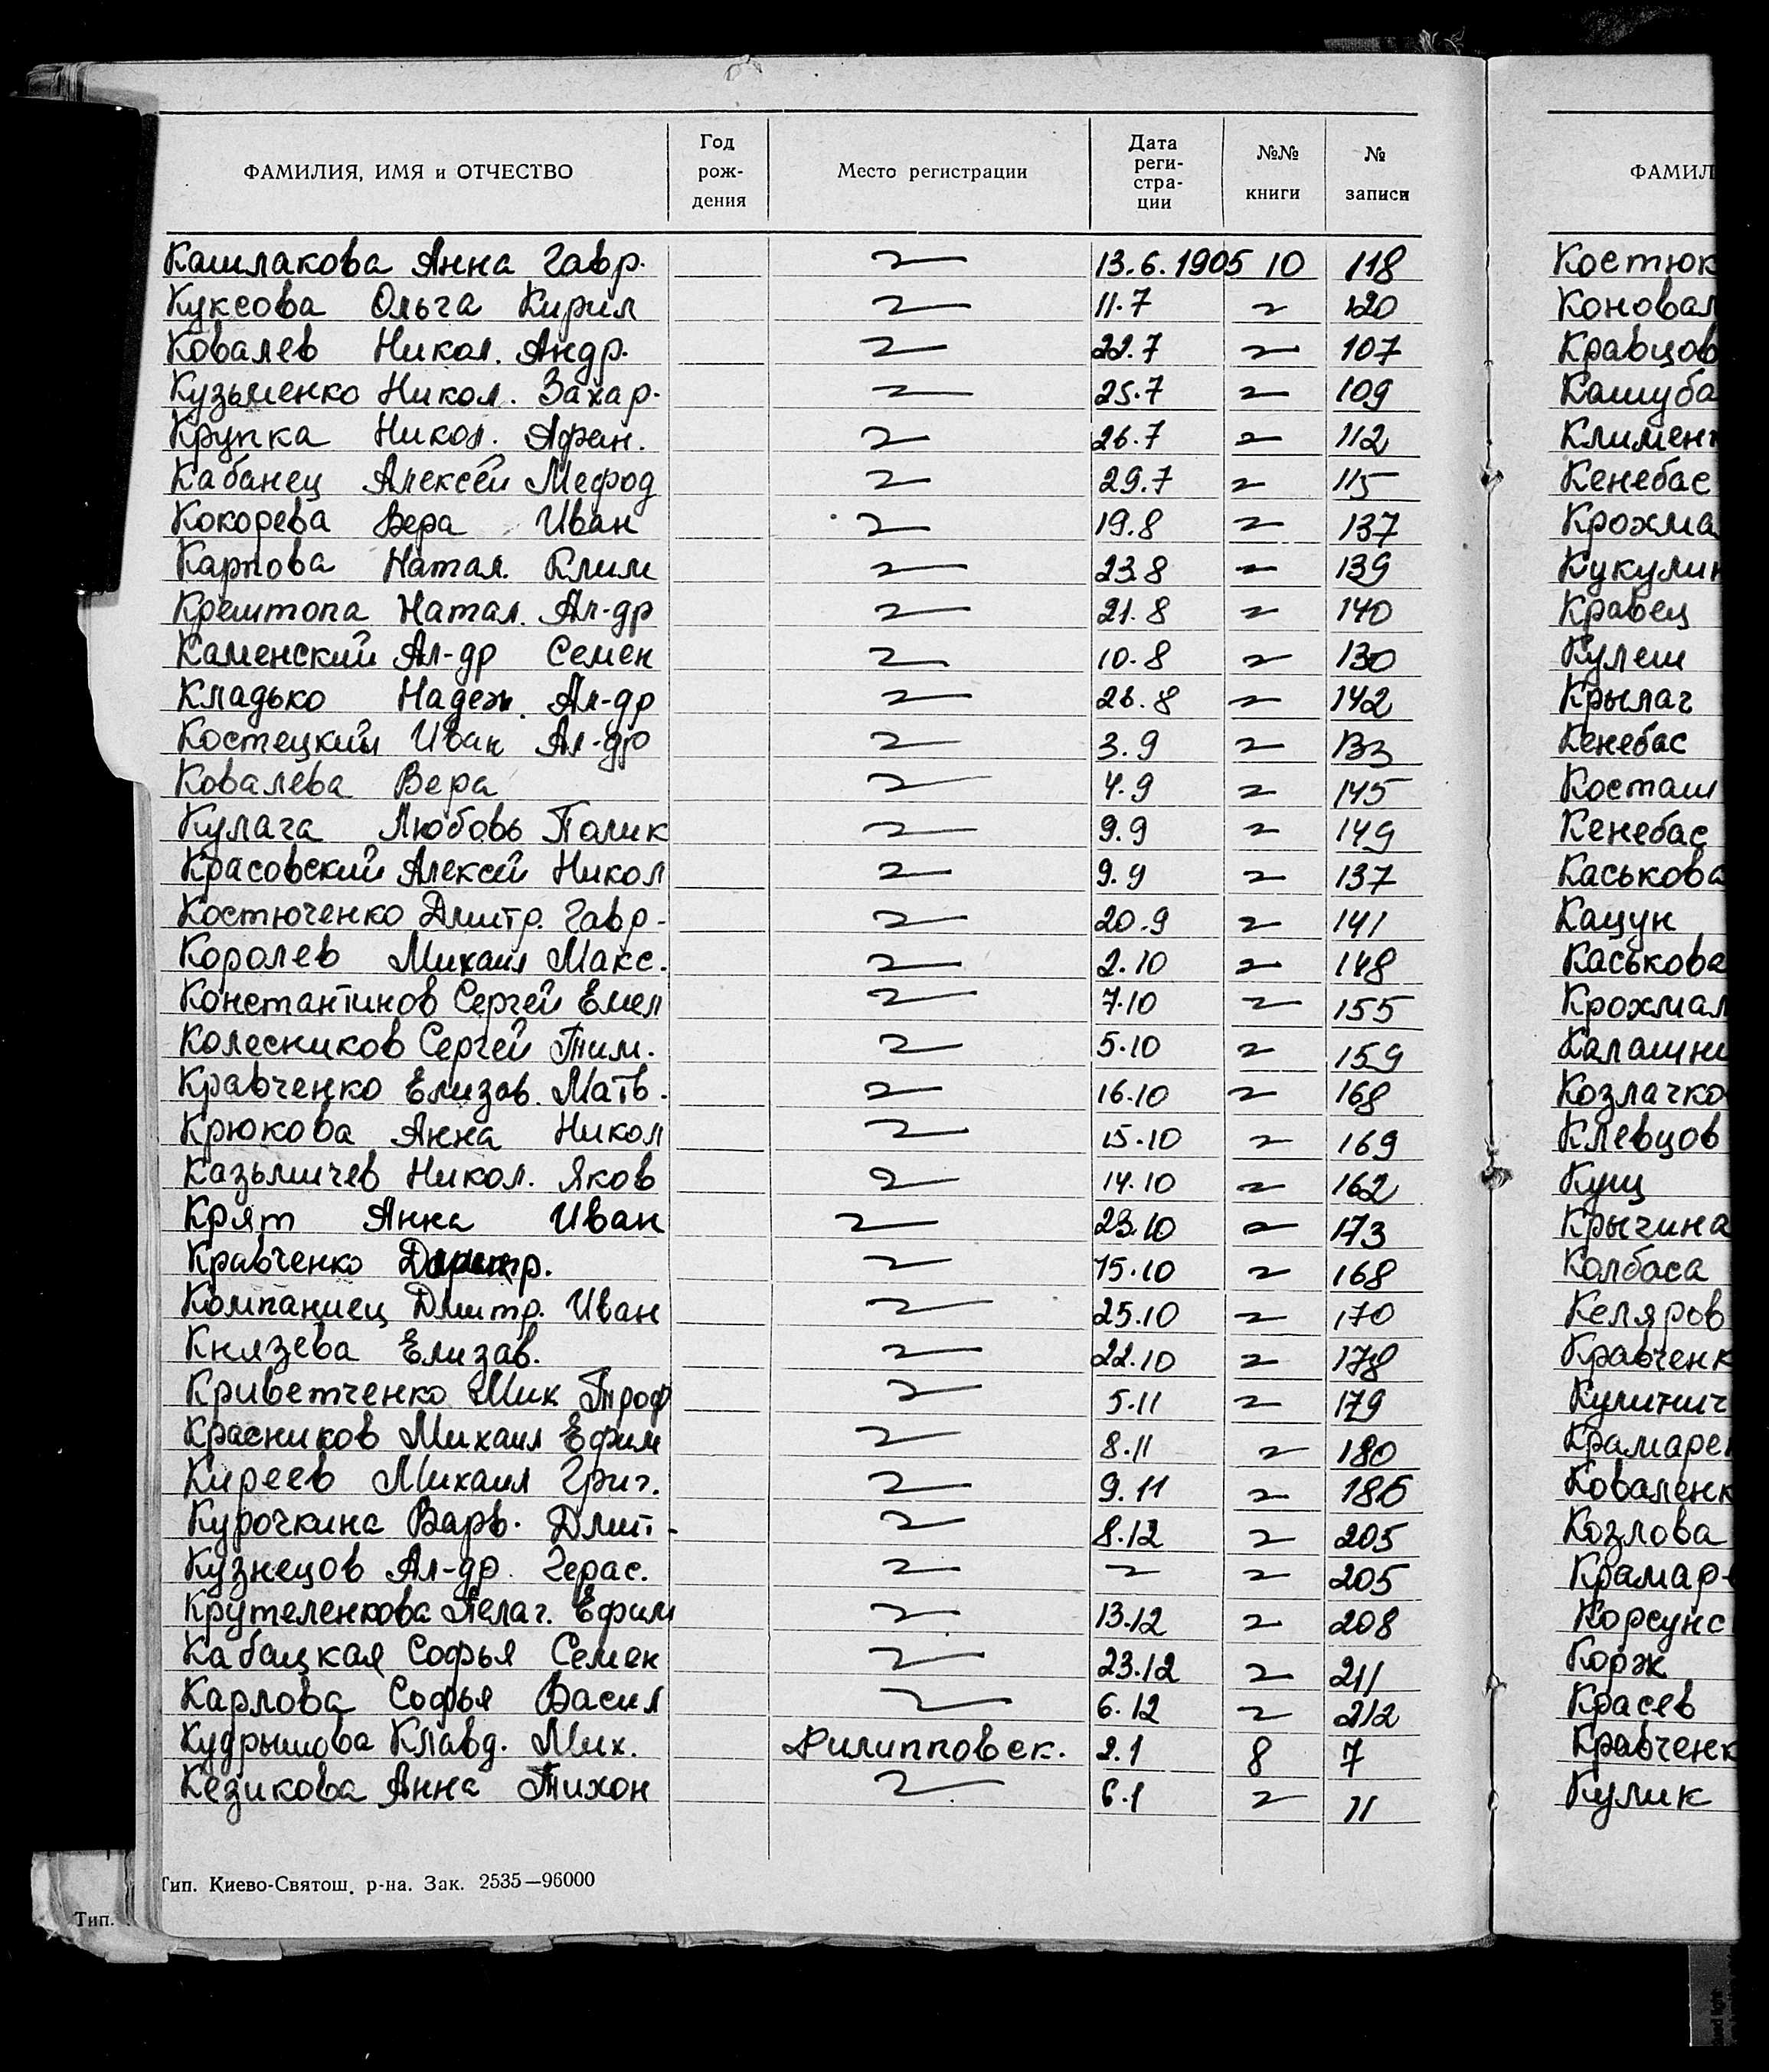 ФАМИЛИЯ, ИМЯ и ОТЧЕСТВО Год рож- дения Место регистрации Дата реги- стра- ции №№ книги № записи ФАМИЛ
Кашлакова Анна Гавр. 13.6.1905 10 118 Костюк
Куксова Ольга Кирил 11.7 120 Коновал
Ковалев Никол. Андр. 22.7 107 Кравцов
Кузьменко Никол. Захар. 25.7 109 Кашуба
Крупка Никол. Афан. 26.7 112 Климен
Кабанец Алексей Мефод 29.7 115 Кенебас
Кокорева Вера Иван 19.8 137 Крохма
Карпова Натал. Клим 23.8 139 Кукулин
Крештопа Натал. Ал-др 21.8 140 Кравец
Каменский Ал-др Семен 10.8 130 Кулеш
Кладько Надеж. Ал-др 26.8 142 Крылач
Костецкий Иван Ал-др 3.9 133 Кенебас
Ковалева Вера 4.9 145 Косташ
Кулага Любовь Полик 9.9 149 Кенебас
Красовский Алексей Никол 9.9 137 Каськова
Костюченко Дмитр. Гавр. 20.9 141 Кацун
Королев Михаил Макс. 2.10 148 Каськова
Константинов Сергей Емел 7.10 155 Крохмал
Колесников Сергей Тим. 5.10 159 Калашни
Кравченко Елизав. Матв. 16.10 168 Козлачко
Крюкова Анна Никол 15.10 169 Клевцов
Казьмичев Никол. Яков 14.10 162 Кущ
Крят Анна Иван 23.10 173 Крычина
Кравченко 15.10 168 Колбаса
Компаниец Дмитр. Иван 25.10 170 Келяров
Князева Елизав. 22.10 178 Кравченк
Криветченко Мих Троф 5.11 179 Кулинич
Красников Михаил Ефим 8.11 180 Крамарен
Киреев Михаил Григ. 9.11 186 Коваленк
Курочкина Варв. Дмит. 8.12 205 Козлова
Кузнецов Ал-др. Герас. 205 Крамар
Крутеленкова Пелаг. Ефим 13.12 208 Корсунс
Кабацкая Софья Семен 23.12 211 Корж
Карлова Софья Васил 6.12 212 Красев
Кудрышова Клавд. Мих. Филипповск. 2.1 8 7 Кравченк
Кезикова Анна Тихон 6.1 11 Кулик
Тип. Киево-Святош. р-на. Зак. 2535—96000
Тип.